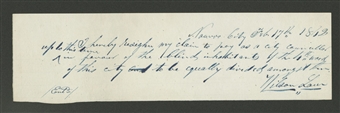 Nauvoo City Feb 17th 1842
up to this time I hereby resign my claim to pay as a city councillor
in favour of the blind inhabitants of the 4th ward
of this city to be equally divided amongst them
Wilson Law